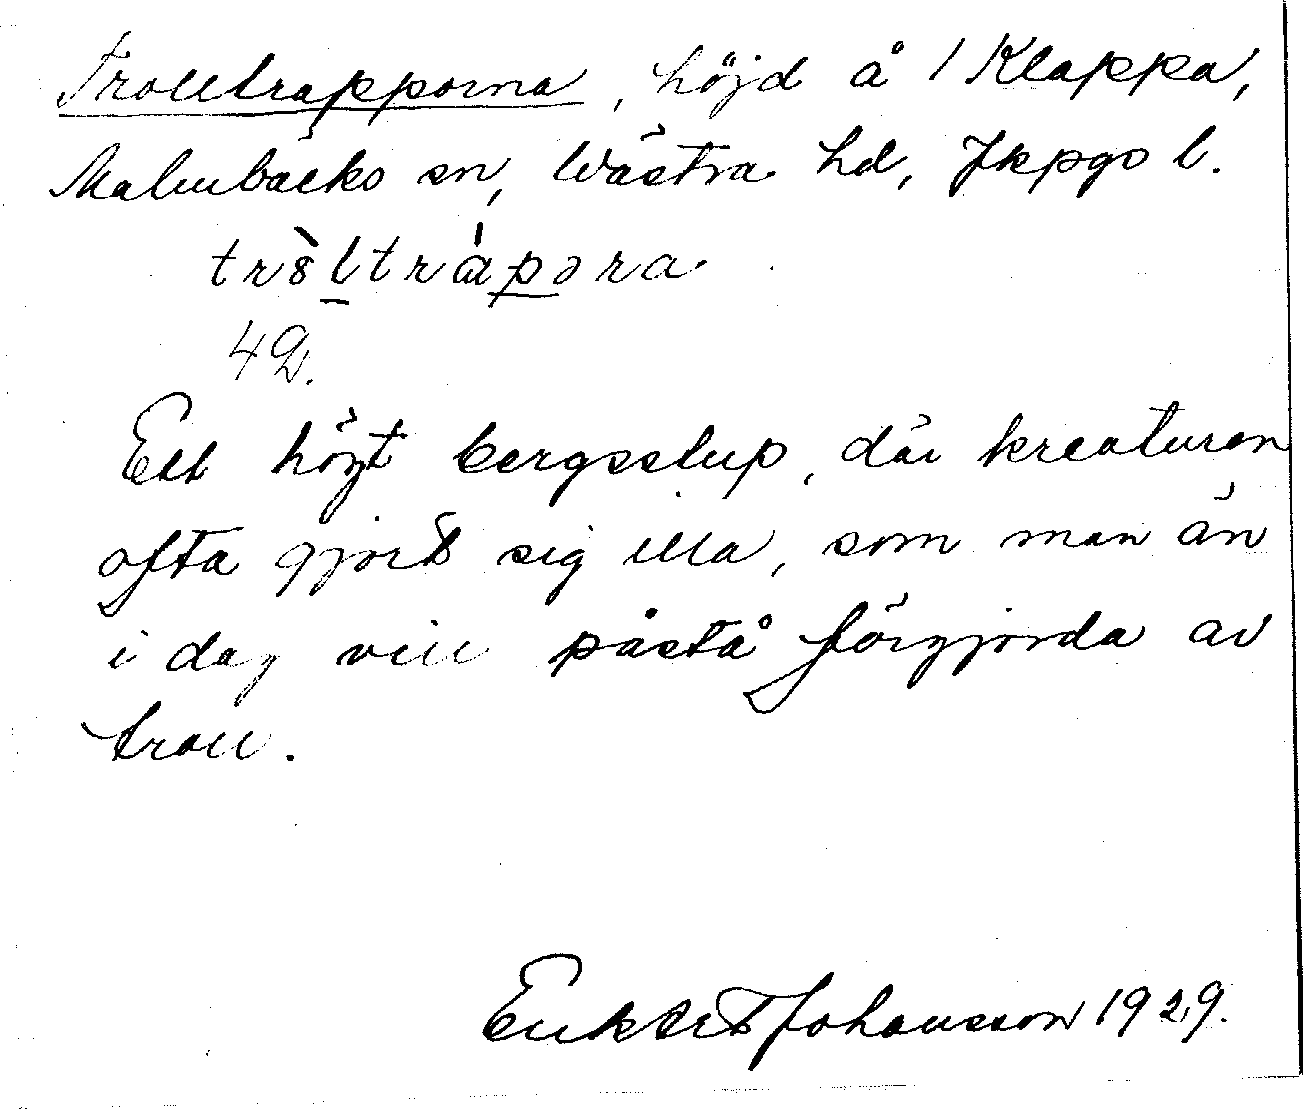 Trolltrapporna, höjd å 1 Klappa,
Malmbäcks sn, Västra hd, Jkpgs l.
tròltrápora
4 D.
Ett högt bergsstup, där kreaturen
ofta gjort sig illa, som man än
i dag vill påstå förgjorda av
troll.
Johansson 1929.